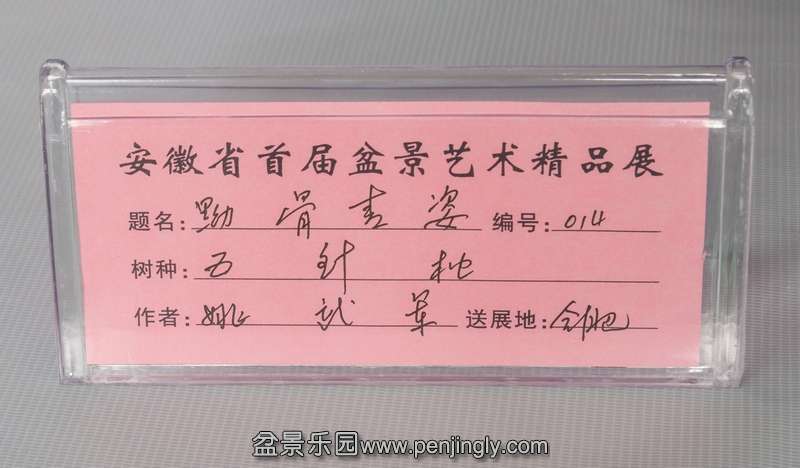 安徽省首届盆景艺术精品展
题名:黝骨青姿 编号:014
树种:五针松
作者:姚武军 送展地:合肥
盆景乐园www.penjingly.com